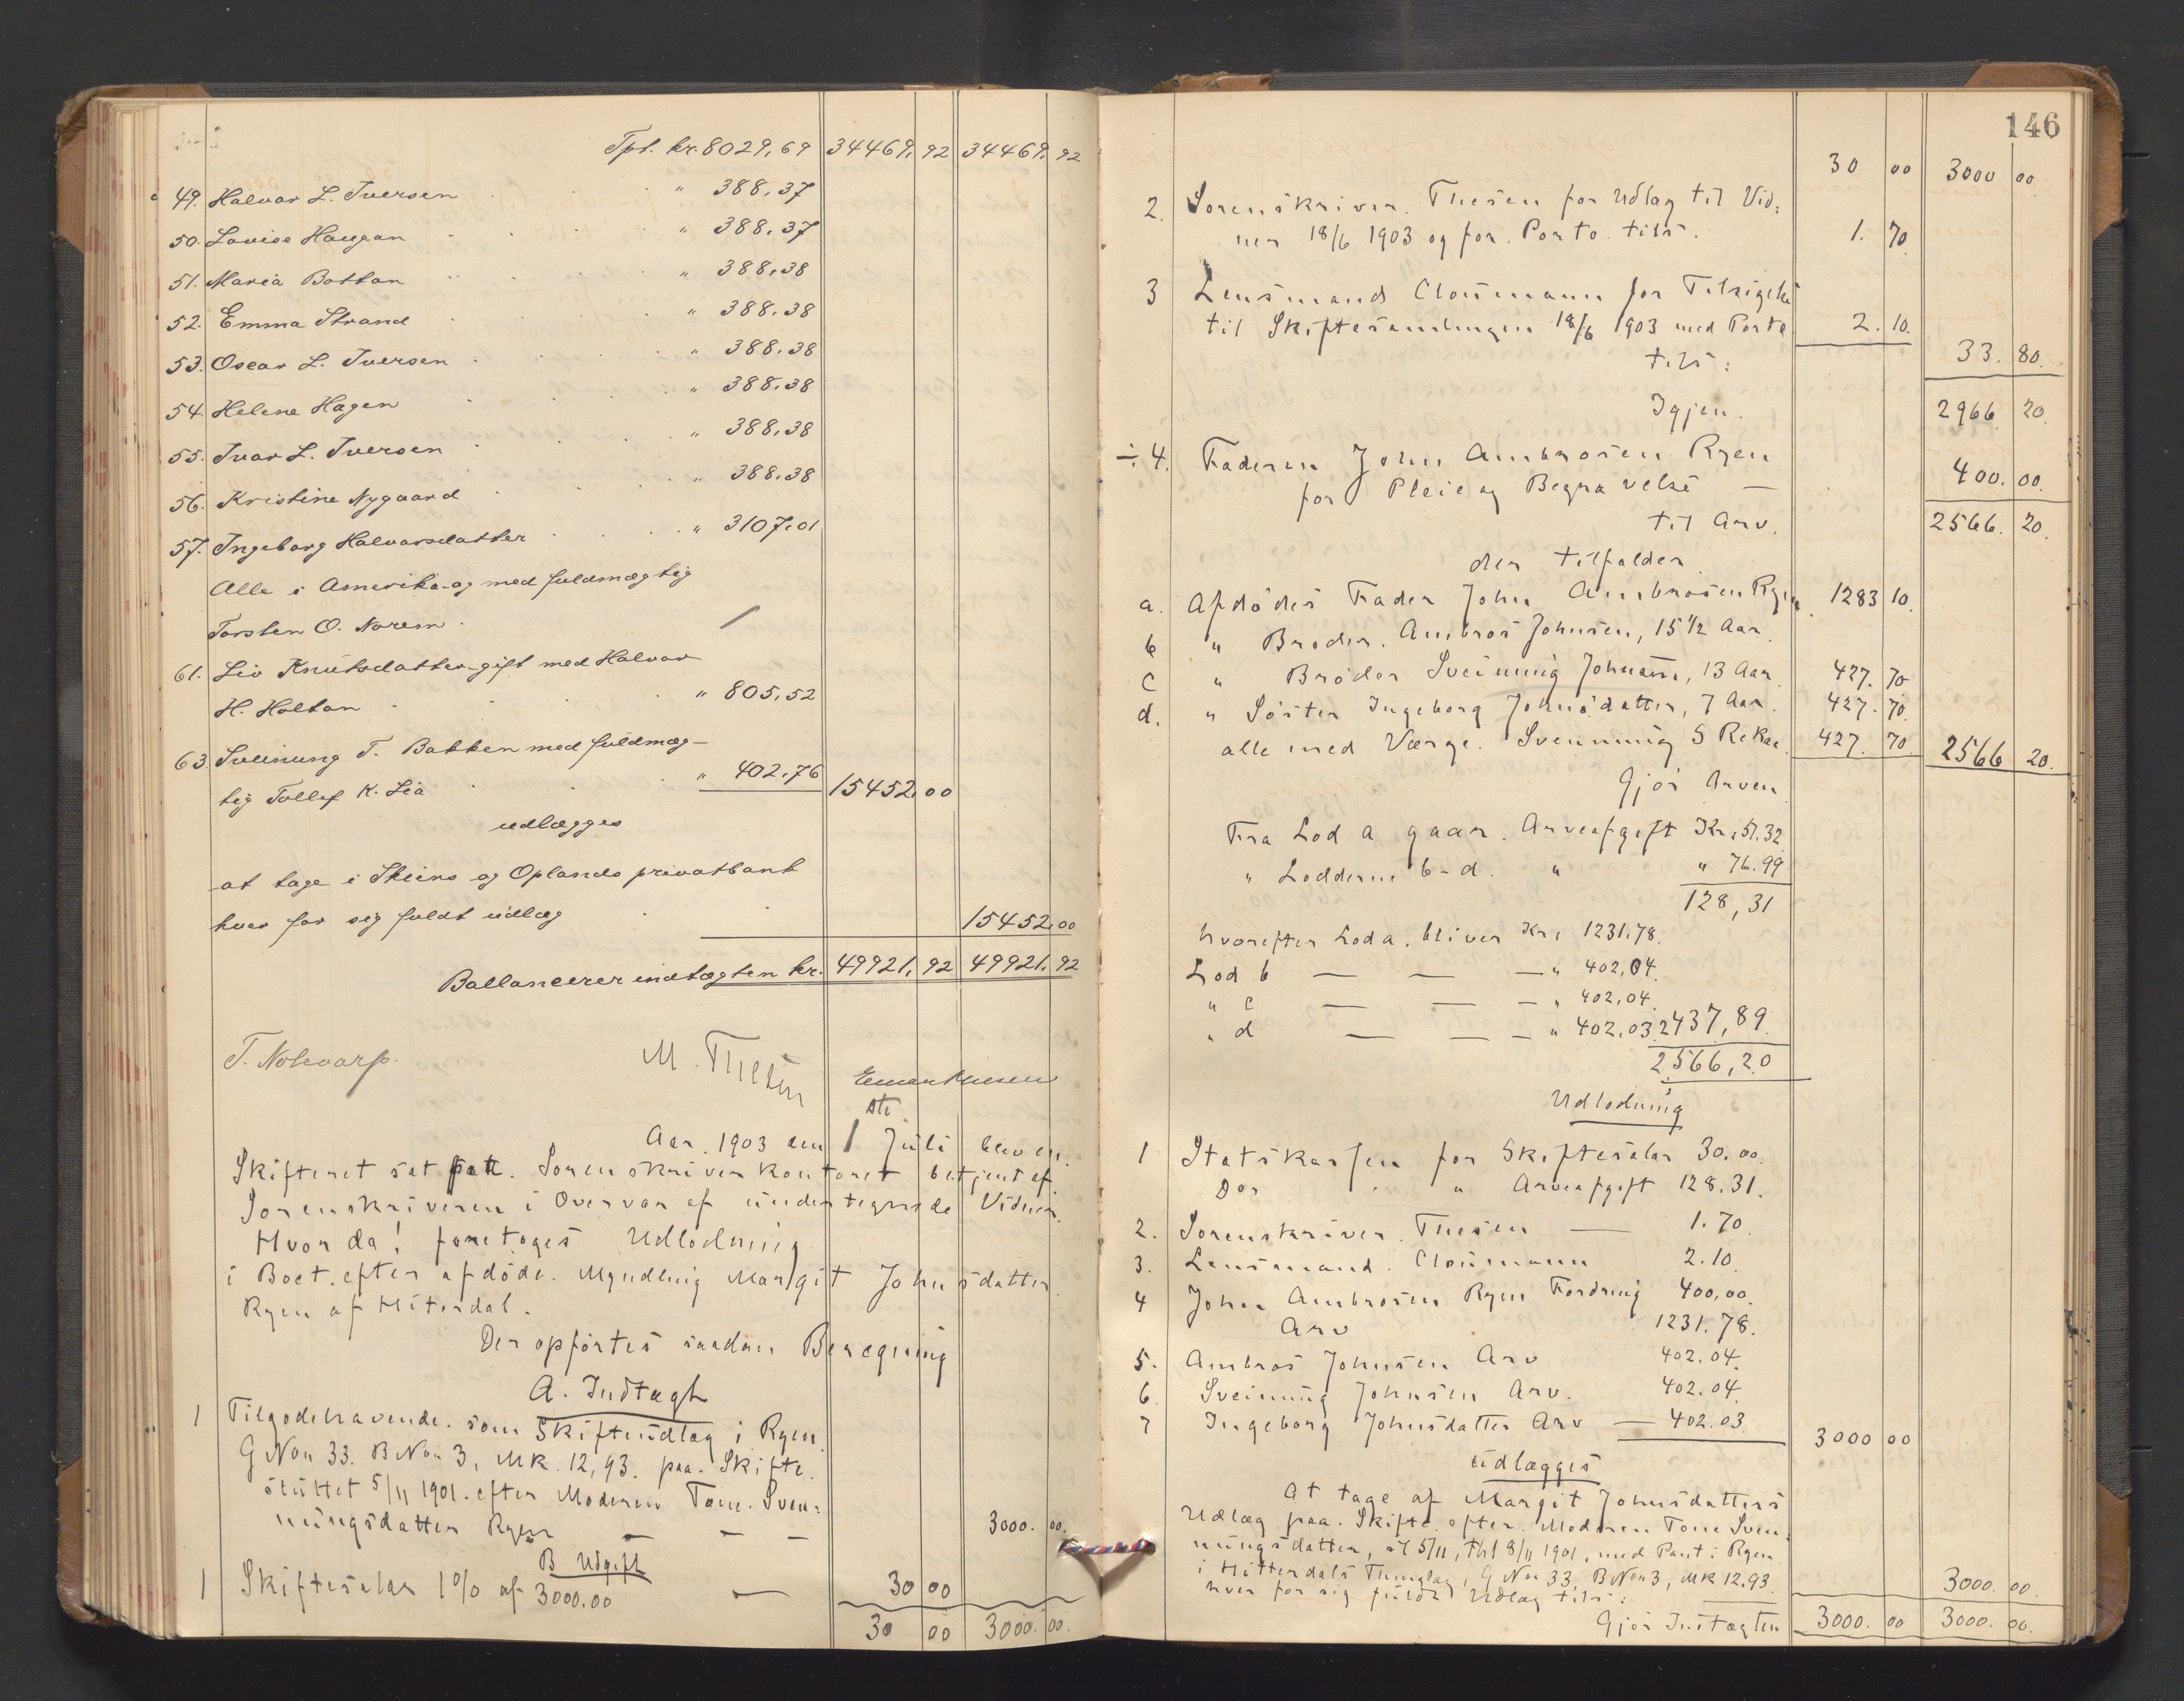 Tpt. kr. 8029,69 34469,92 34469,92
49. Halvor L. Iversen " 388,37
50. Lovise Haugan " 388,37
51. Maria Bottan " 388,38
52. Emma Strand " 388,38
53. Oscar L. Iversen " 388,38
54. Helene Hagen " 388,38
55. Ivar L. Iversen " 388,38
56. Kristine Nygaard " 388,38
57. Ingeborg Halvorsdatter " 3107,01
Alle i Amerika og med fuldmægtig
Torsten O. Norem.
61. Liv Knutsdatter gift med Halvor
H. Holtan " 805,52
63. Sveinung T. Bakken med fuldmæg-
tig Tollef K. Lia " 402,76 15452,00
udlægges
at tage i Skiens og Oplands privatbank
hver for sig fuldt udlæg 15452,00
Ballancerer indtægten kr. 49921,92 49921,92
T. Notevarp. M. Thesen
Aar 1903 den 1ste Juli blev en
Skifteret sat paa Sorenskriverkontoret betjent af
Sorenskriveren i Overvær af undertegnede Vidner.
Hvor da! foretoges Udlodning
i Boet efter afdøde Myndling Margit Johnsdatter
Ryen af Hiterdal.
Der opførtes saadan Beregning
A. Indtægt
1 Tilgodehavende som Skifteudlæg i Ryen
G No 33. B No 3, Mk. 12,93. paa Skifte
sluttet 5/11 1901. efter Moderen Tone Sven-
nungsdatter Ryen — — — 3000.00.
B Udgift
1 Skiftesalær 1% af 3000.00 — 30 00
30 00 3000.00.
146
30 00 3000 00
2. Sorenskriver Thesen for Udlæg til Vid-
ner 18/6 1903 og for Porto tils. 1.70
3 Lensmand Cloumann for Tilsigelse
til Skiftesamlingen 18/6 1903 med Porto 2.10.
tils: 33.80.
Igjen. 2966 20.
÷ 4. Faderen John Ambrosen Ryen
for Pleie og Begravelse — 400.00.
til Arv. 2566.20.
der tilfalder
a. Afdødes Fader John Ambrosen Ryen 1283 10.
b " Broder. Ambros Johnsen, 15 1/2 Aar.
c " Broder Sveinung Johnsen, 13 Aar. 427.70
d. " Søster Ingeborg Johnsdatter, 7 Aar. 427.70.
alle med Værge. Svennung S Rekaa. 427.70 2566 20.
Gjør Arven
Fra Lod a gaar. Arveafgift Kr. 51.32
" Lodderne b-d. " " 76.99
128,31
hvorefter Lod a. bliver Kr. 1231.78.
Lod b — — — " 402,04.
" c — — — " 402,04.
" d — — — " 402.03 2437,89.
2566,20
Udlodning
1 Statskassen for Skiftesalær 30.00.
Do " Arveafgift 128.31.
2. Sorenskriver Thesen — 1.70
3. Lensmand. Cloumann 2.10.
4 John Ambrosen Ryen Fordring 400,00.
Arv 1231.78.
5. Ambros Johnsen Arv 402.04.
6 Sveinung Johnsen Arv. 402.04.
7 Ingeborg Johnsdatter Arv — 402.03. 3000 00
udlægges
At tage af Margit Johnsdatters
Udlæg paa Skifte efter Moderen Tone Sven-
nungsdatter, sl 5/11, thl 8/11 1901, med Pant i Ryen
i Hitterdals Thinglag, G No 33, B No 3, Mk 12.93.
hver for sig fuldt Udlæg tils: 3000.00.
Gjør Indtægten 3000.00 3000.00.